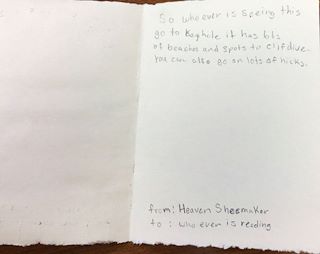 So who ever is speing this
go to Keyhole it has lots
of beaches and spots to clif dive.
You can also go on lots of hicks.
from: Heaven Shoemaker
to: who ever is reading